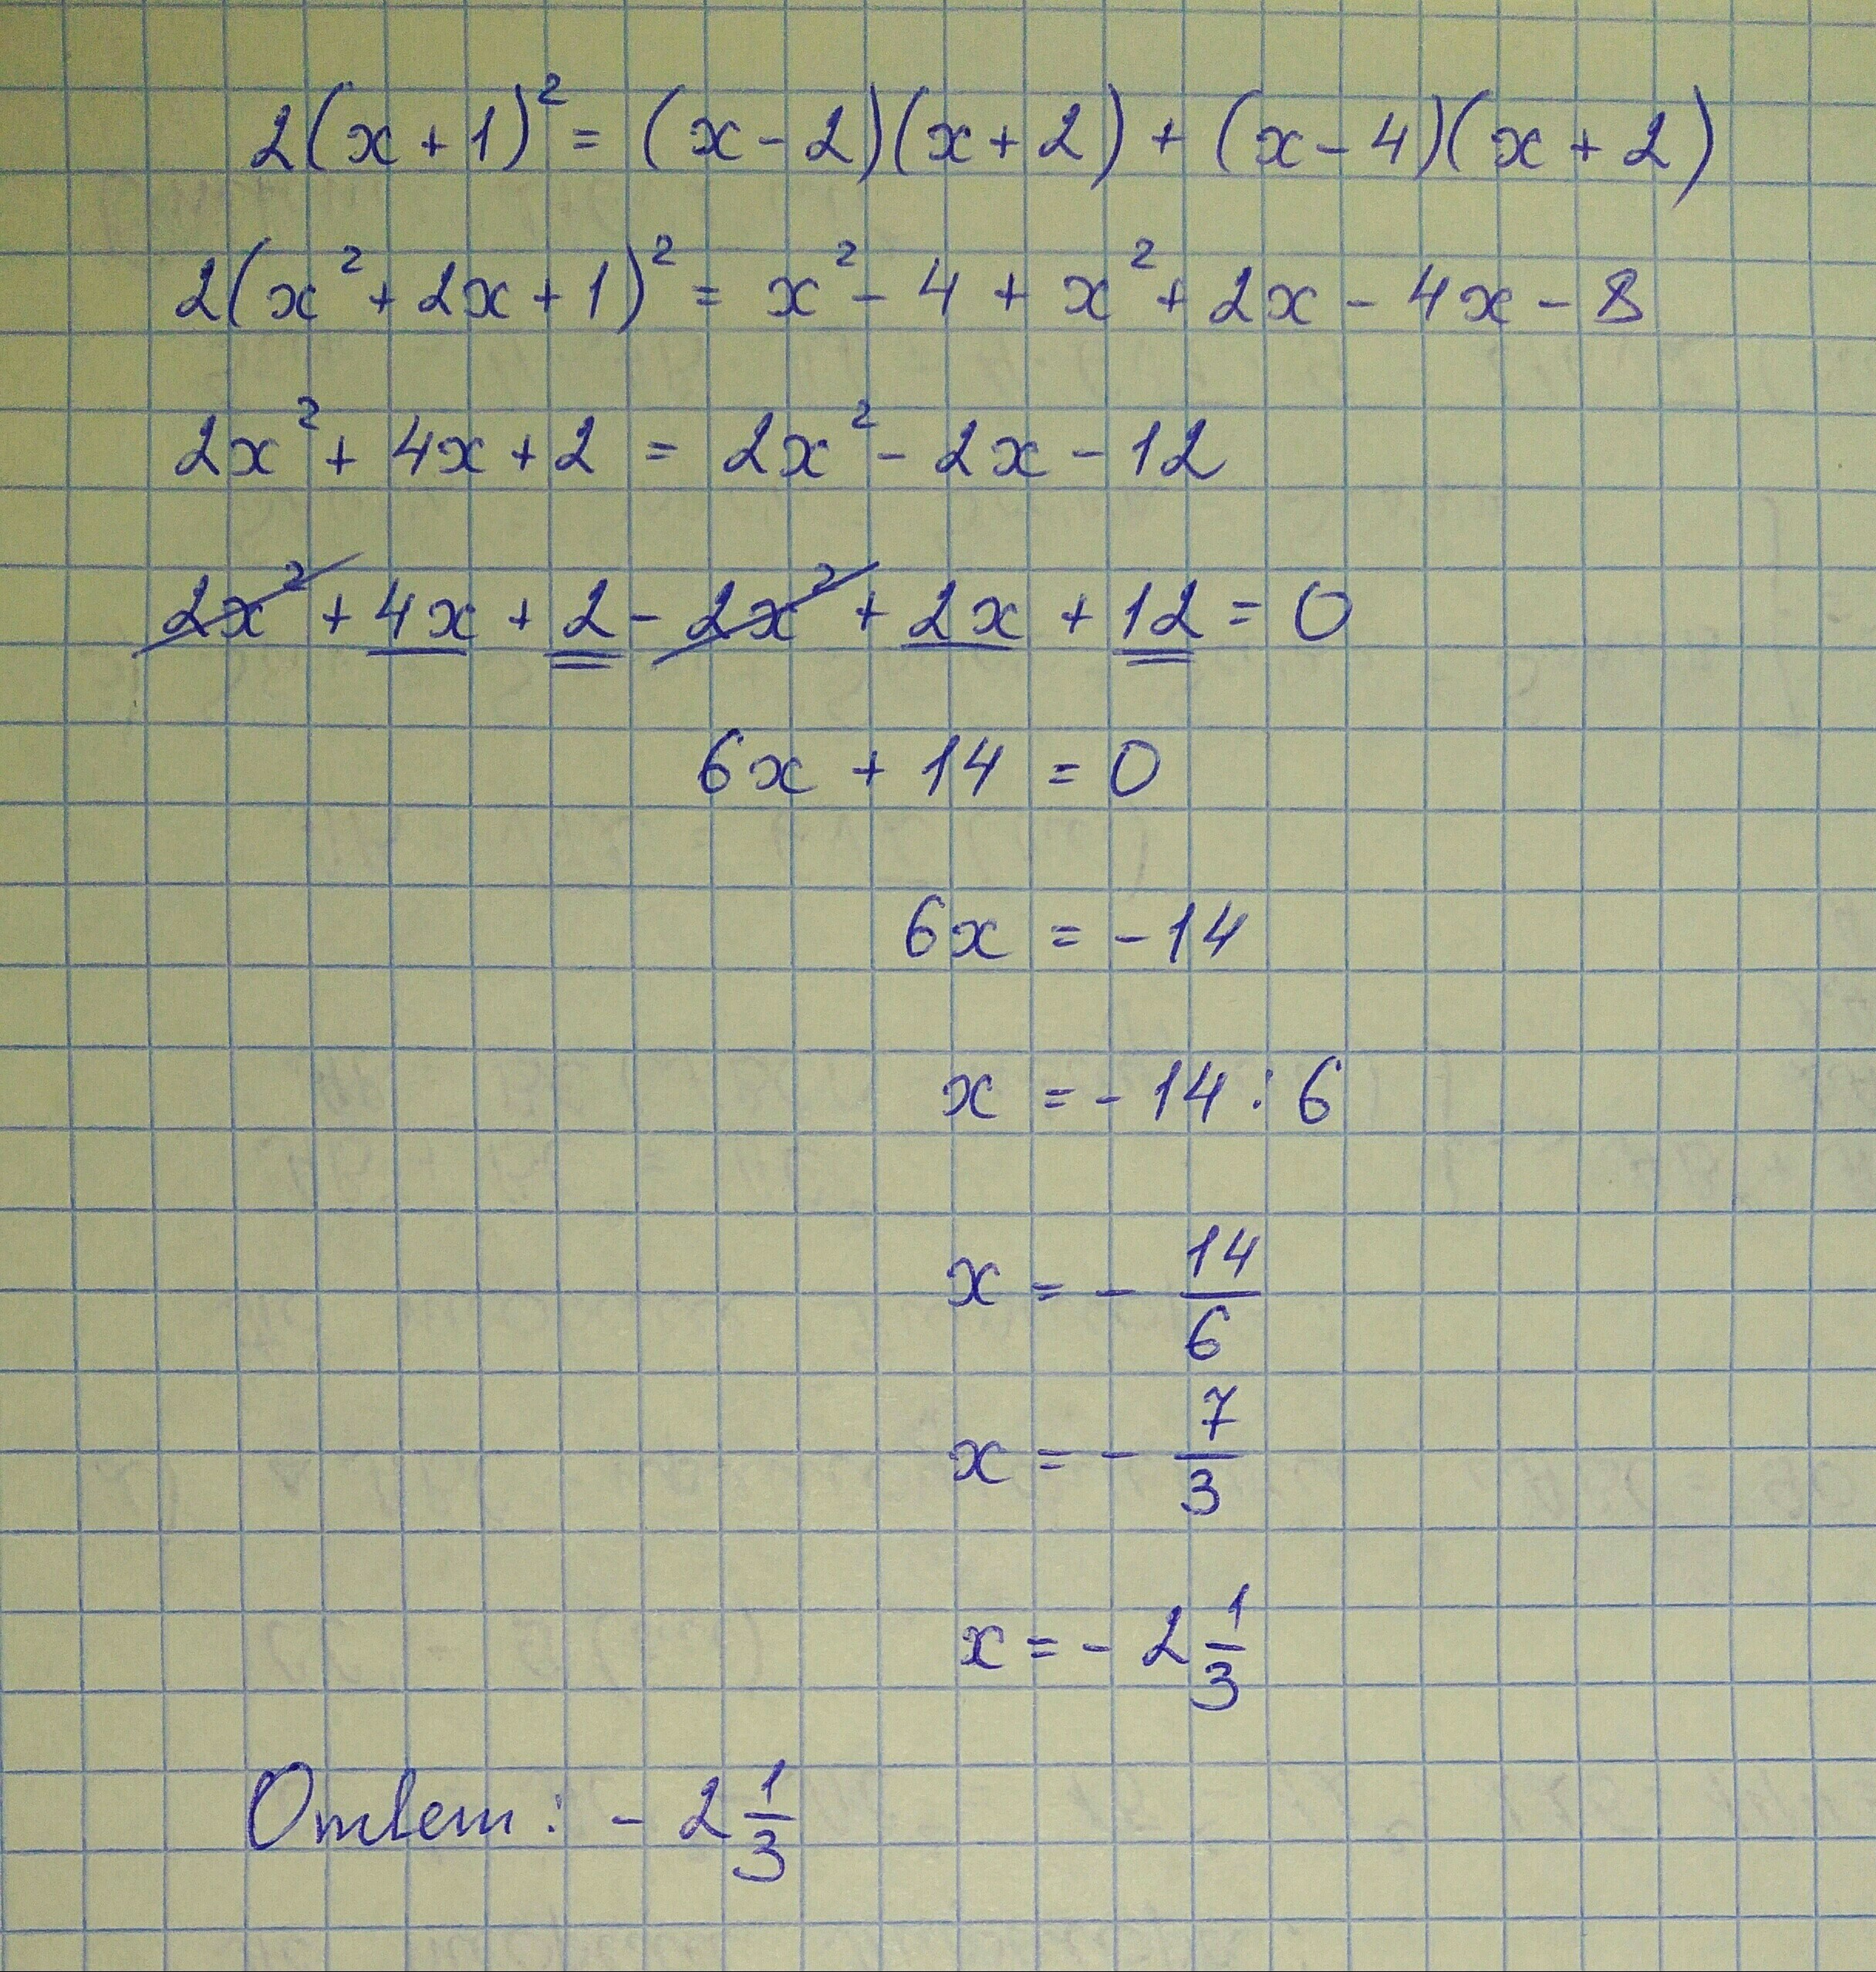 2(x+1)² = (x-2)(x+2) + (x-4)(x+2)
2(x²+2x+1)² = x²-4+x²+2x-4x-8
2x²+4x+2 = 2x²-2x-12
2x²+4x+2-2x²+2x+12=0
6x+14=0
6x=-14
x=-14:6
x=-14/6
x=-7/3
x=-2 1/3
Ответ: -2 1/3